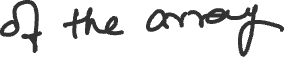 of the array